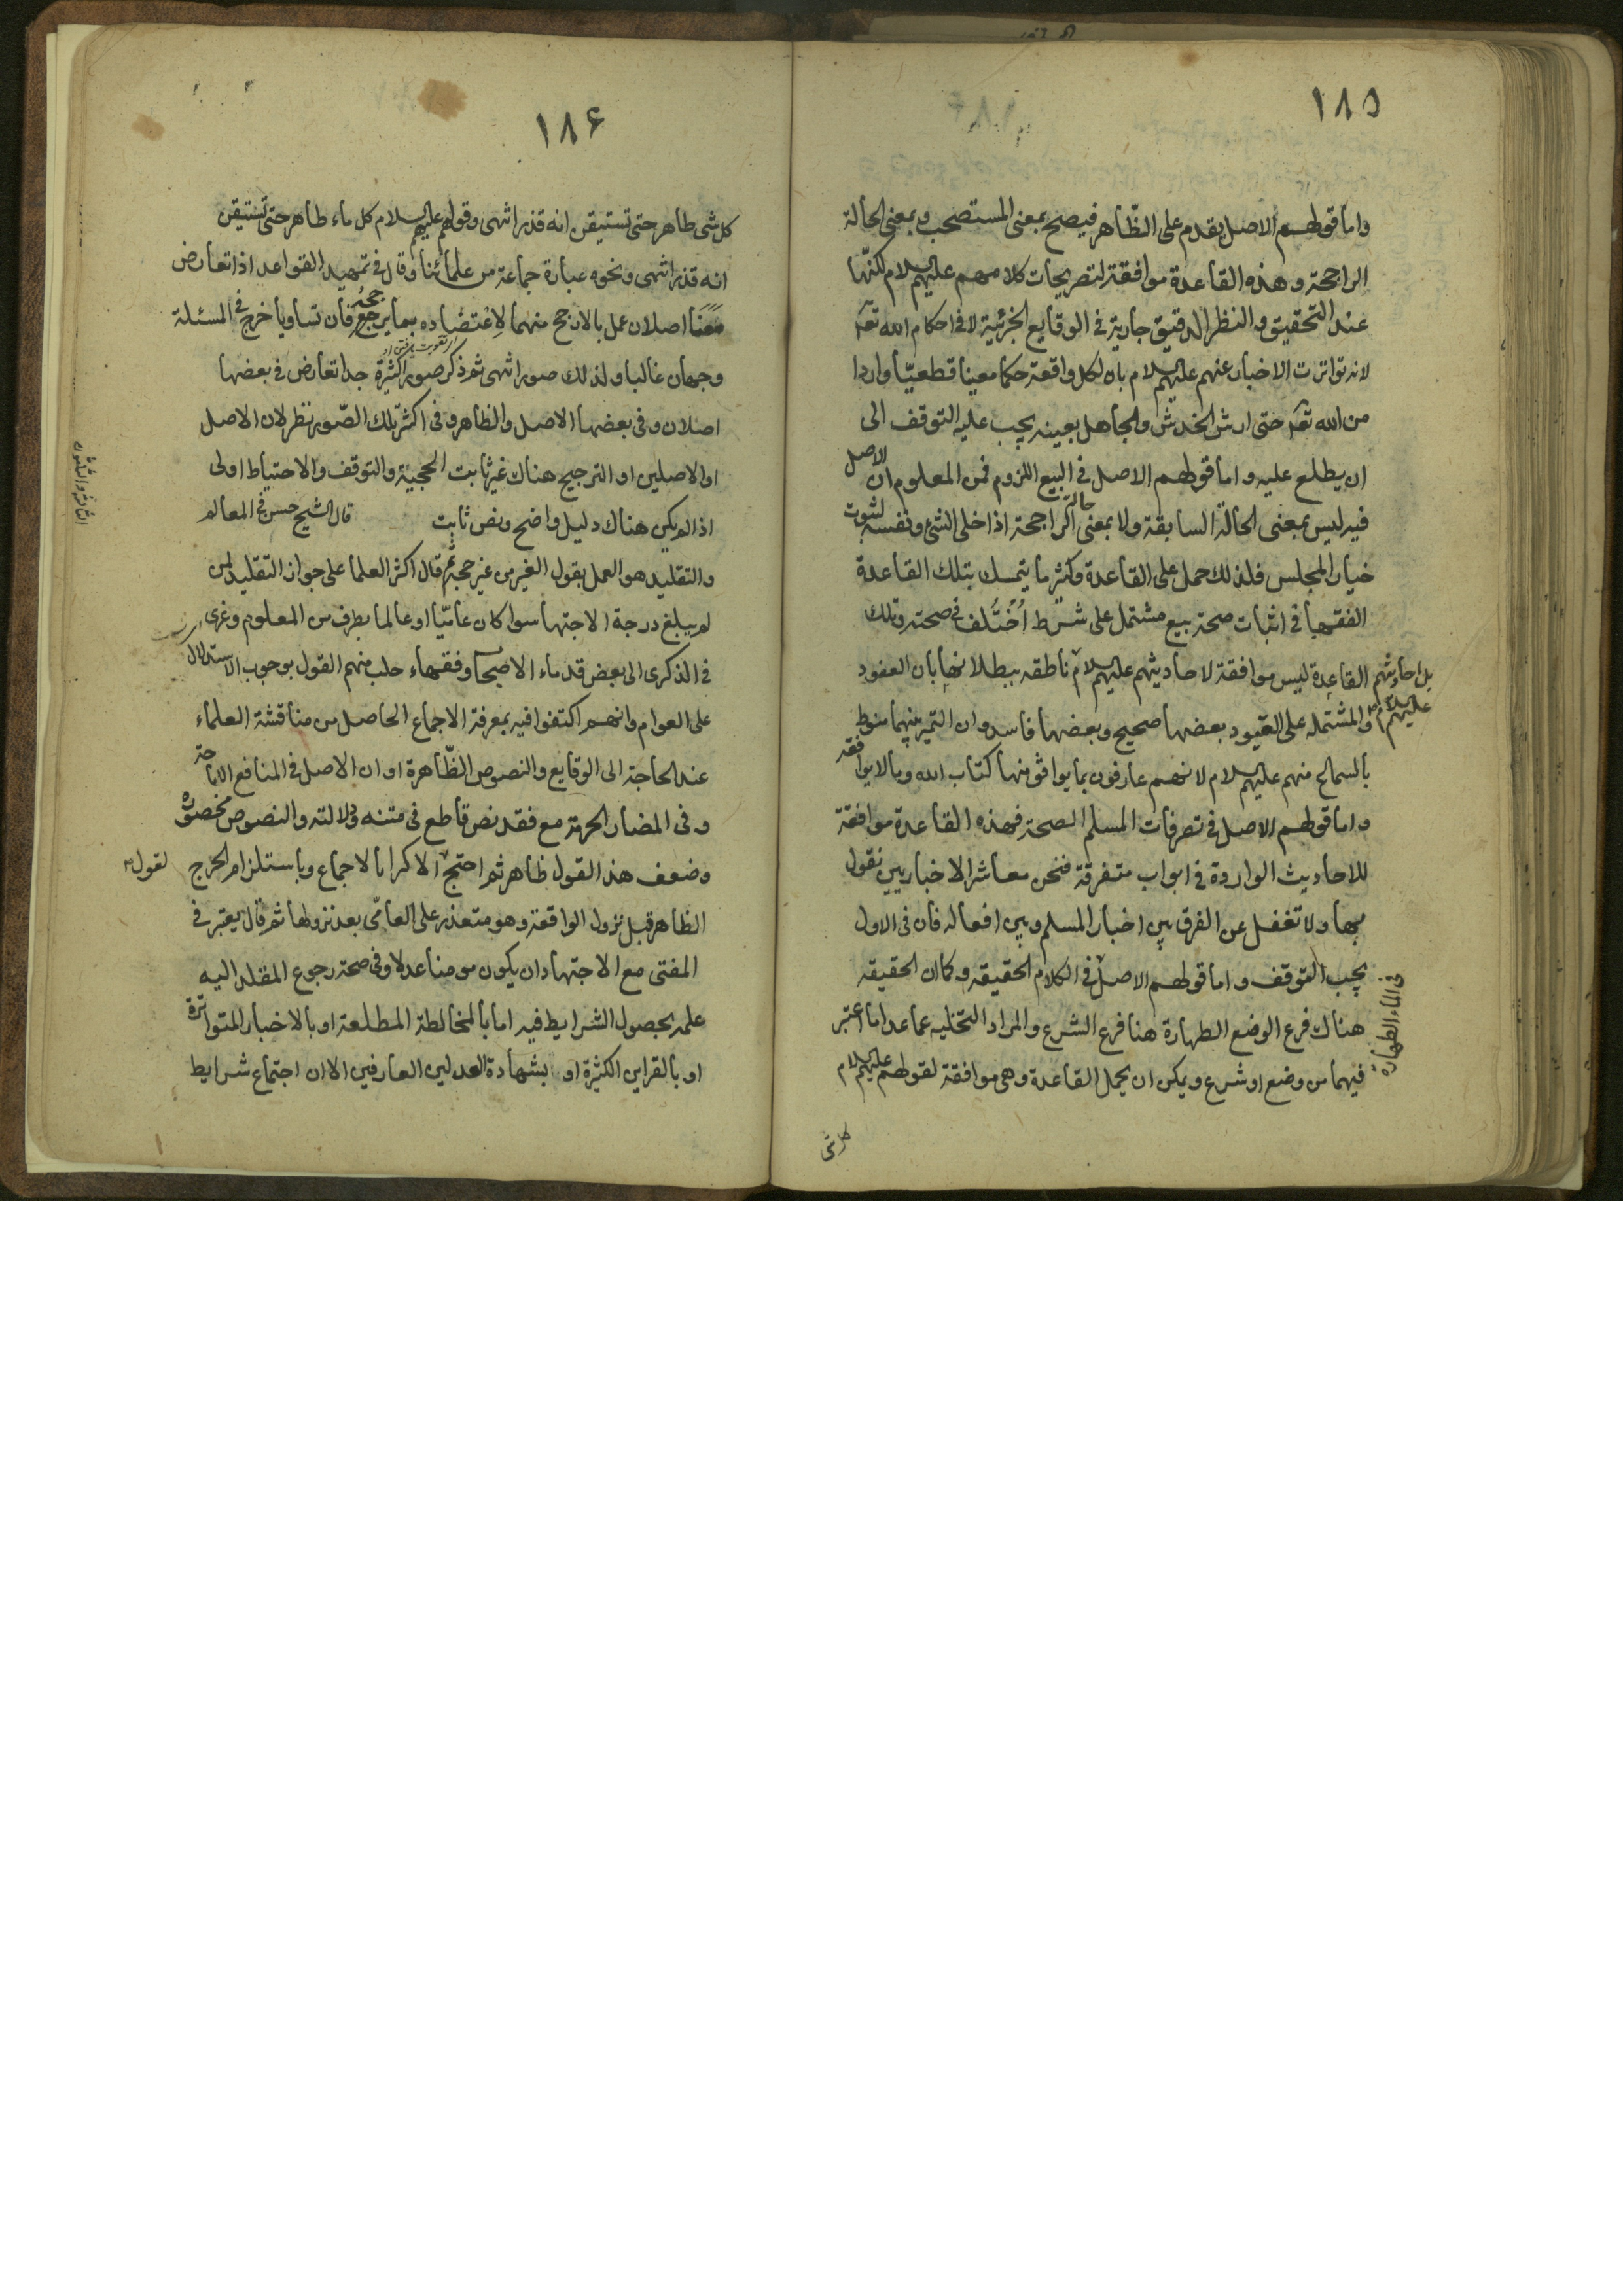 ١٨٥
واما قولهم الاصل يقدم على الظاهر فيصح بمعنى المستصحب وبمعنى الحالة
الراجحة وهذه القاعدة موافقة لتصريحات كلامهم عليهم السلام لكنها
عند التحقيق والنظر الدقيق جارية في الوقايع الجزئية لا في احكام الله تعالى
لانه تواترت الاخبار عنهم عليهم السلام بان لكل واقعة حكما معينا قطعيا واردا
من الله تعالى حتى ارش الخدش والجاهل بعينه يجب عليه التوقف الى
ان يطلع عليه واما قولهم الاصل في البيع اللزوم فمن المعلوم ان الاصل
فيه ليس بمعنى الحالة السابقة ولا بمعنى حالة الراجحة اذا خلى الشئ ونفسه لثبوت
خيار المجلس فلذلك حمل على القاعدة وكثيرما يتمسك بتلك القاعدة
الفقهاء في اثبات صحة بيع مشتمل على شرط اختلف في صحته وتلك
القاعدة ليس موافقة لاحاديثهم عليهم السلام بل احاديثهم عليهم السلام ناطقه ببطلانها بان العقود
والمشتمله على القيود بعضها صحيح وبعضها فاسد وان التميز بينهما منوط
بالسماع منهم عليهم السلام لانهم عارفون بما يوافق منها كتاب الله وبما لا يوافقه
واما قولهم الاصل في تصرفات المسلم الصحة فهذه القاعدة موافقة
للاحاديث الواردة في ابواب متفرقة فنحن معاشر الاخباريين نقول
بها ولا تغفل عن الفرق بين اخبار المسلم وبين افعاله فان في الاول
يجب التوقف واما قولهم الاصل في الكلام الحقيقه وكما ان الحقيقه
في الماء الطهارة
هناك فرع الوضع الطهارة هنا فرع الشرع والمراد التخليه عما عدا ما اعتبر
فيهما من وضع او شرع ويمكن ان يحمل القاعدة وهي موافقة لقولهم عليهم السلام
كل شئ
١٨۶
كل شى طاهر حتى تستيقن انه قذر انتهى وقولهم عليهم السلام كل ماء طاهر حتى تستيقن
انه قذر انتهى ونحوه عبارة جماعة من علمائنا وقال في تمهيد القواعد اذا تعارض
معنا اصلان عمل بالارجح منهما لاعتضاده بما يرجحه فان تساويا خرج في المسئلة
وجهان غالبا ولذلك صور انتهى ثم ذكر صورا كثيرة جدا تعارض في بعضها
اصلان وفى بعضها الاصل والظاهر وفى اكثر تلك الصور نظر لان الاصل
او الاصلين او الترجيح هناك غير ثابت الحجية والتوقف والاحتياط اولى
اذا لم يكن هناك دليل واضح ونص ثابت قال الشيخ حسن في المعالم
والتقليد هو العمل بقول الغير من غير حجة ثم قال اكثر العلما على جواز التقليد لمن
لم يبلغ درجة الاجتهاد سوا كان عاميا او عالما بطرف من العلوم وعزى
في الذكرى الى بعض قدماء الاصحاب وفقهاء حلب منهم القول بوجوب الاستدلال
على العوام وانهم اكتفوا فيه بمعرفة الاجماع الحاصل من مناقشة العلماء
عند الحاجة الى الوقايع والنصوص الظاهرة او ان الاصل في المنافع الاباحة
وفى المضار الحرمة مع فقد نص قاطع في متنه ودلالته والنصوص محصورة
وضعف هذا القول ظاهر ثم احتج الاكثر بالاجماع وباستلزام الحرج
الظاهر قبل نزول الواقعة وهو متعذر على العامى بعد نزولها ثم قال يعتبر في
المفتى مع الاجتهاد ان يكون مومنا عدلا وفى صحة رجوع المقلد اليه
علمه بحصول الشرايط فيه اما بالمخالطة المطلعة او بالاخبار المتواترة
او بالقراين الكثيرة او بشهادة العدلين العارفين الا ان اجتماع شرايط